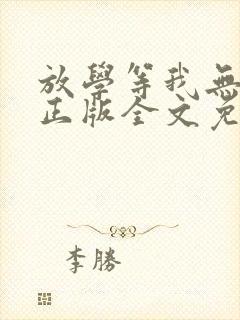 放學等我無
正版全文免
李勝